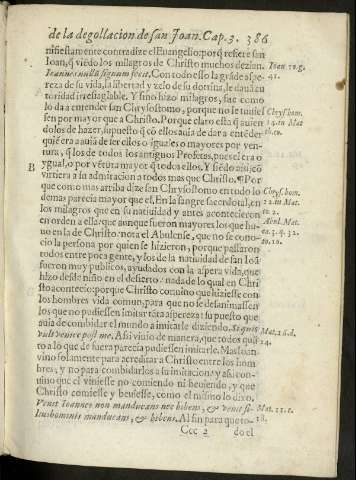 de la degollacion de san Joan. Cap. 3. 386
nifiestamente contradize el Euangelio: porq̃ refiere san
Ioan, q̃ viẽdo los milagros de Christo muchos dezian. Ioan 10. g.
Ioannes nullũ signum fecit. Con todo esso la grãde aspe- 41.
reza de su vida, la libertad y zelo de su dotrina, le daua au
toridad irrefragable. Y sino hizo milagros, fue como
lo da a entender san Chrysostomo, porque no le tuuies Chrysost.
sen por mayor que a Christo. Porque claro esta q̃ auien
dolos de hazer, supuesto q̃ cõ ellos auia de dar a entẽder
quiẽ era auiã de ser ellos o iguales o mayores por ven-
tura, q̃ los de todos los antiguos Profetas, pues el era o
B ygual, o por vẽtura mayor q̃ todos ellos. Y siẽdo assi, cõ
virtiera a su admiracion a todos mas que Christo. ¶ Por
que como mas arriba dize san Chrysostomo en todo lo Chrysost.
demas parecia mayor que el. En la sangre sacerdotal, en 12. in Mat
los milagros que en su natiuidad y antes acontecieron
en orden a ella: que aunque fueron mayores los que hu-
uo en la de Christo, nota el Abulense, que no se cono-
cio la persona por quien se hizieron, porque passaron
todos entre poca gente, y los de la natiuidad de san Ioã
fueron muy publicos, ayudados con la aspera vida, que
hizo desde niño en el desierto: nada de lo qual en Chri
sto acontecio: porque Christo conuino que hiziesse con
los hombres vida comun, para que no se desanimassen
los que no pudiessen imitar tãta aspereza: su puesto que
auia de combidar el mundo a imitarle diziendo. Si quis Mat. 16. d.
vult venire post me. Assi viuio de manera, que todos quã 24.
to a lo que de fuera parecia pudiessen imitarle. Mas Ioan
vino solamente para acreditar a Christo entre los hom
bres, y no para combidarlos a su imitacion: y assi con-
uino que el viniesse no comiendo ni beuiendo, y que
Christo comiesse y beuiesse, como el mismo lo dixo.
Venit Ioannes non manducans nec bibens, & venit fi- Mat. 11. c.
lius hominis manducans, & bibens. Al fin para que to- 18.
Ccc 2 do el